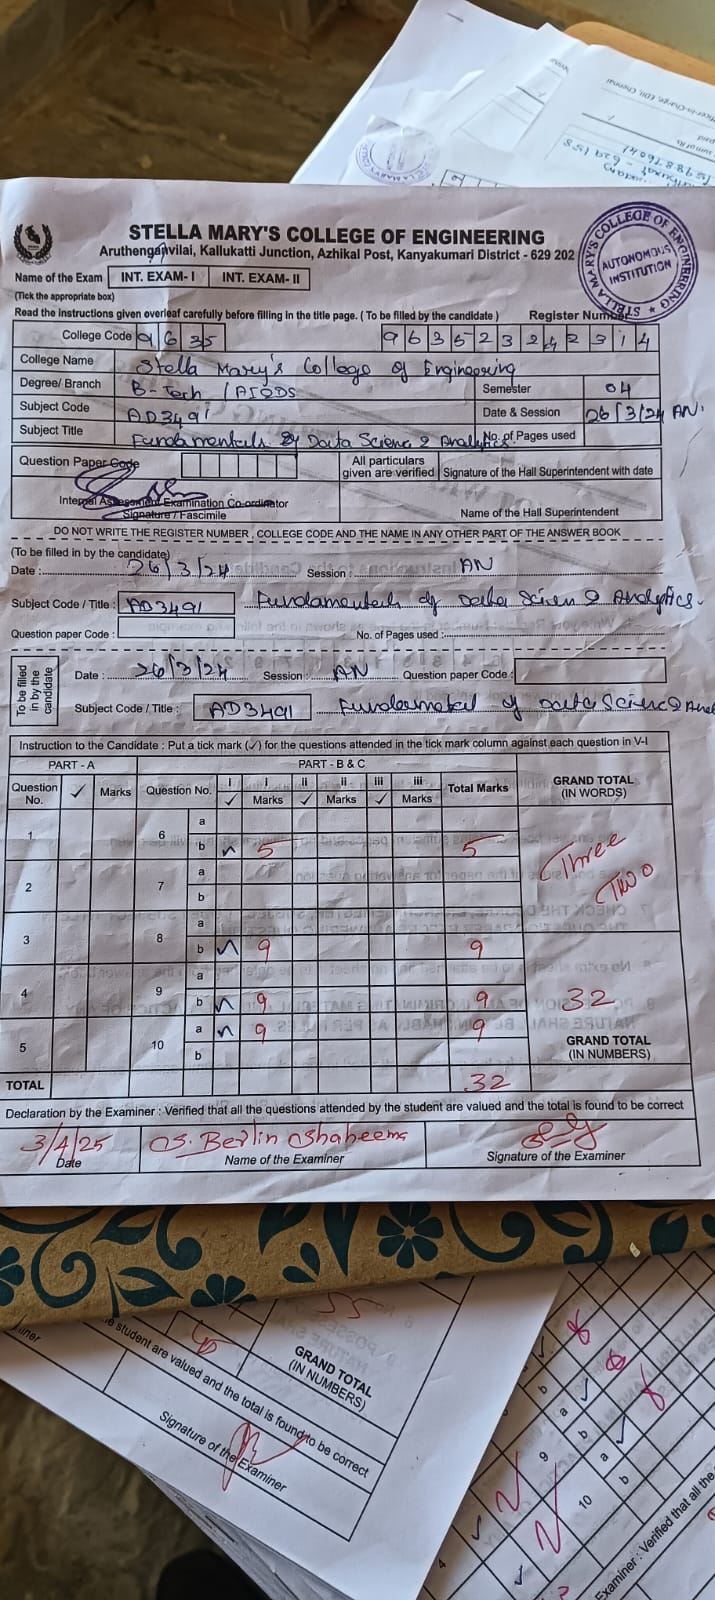 STELLA MARY'S COLLEGE OF ENGINEERING
Aruthenganvilai, Kallukatti Junction, Azhikal Post, Kanyakumari District - 629 202
STELLA MARY'S COLLEGE OF ENGINEERING
AUTONOMOUS INSTITUTION
Name of the Exam INT. EXAM- I INT. EXAM- II
(Tick the appropriate box)
Read the instructions given overleaf carefully before filling in the title page. ( To be filled by the candidate ) Register Number
College Code 9635
College Name Stella Mary's College of Engineering
Degree/ Branch B-Tech / AI&DS Semester 04
Subject Code AD3491 Date & Session 26/3/24 AN.
Subject Title Fundamentals of Data Science & Analytics No. of Pages used
Question Paper Code All particulars given are verified Signature of the Hall Superintendent with date
Internal Assessment Examination Co-ordinator
Signature / Fascimile Name of the Hall Superintendent
DO NOT WRITE THE REGISTER NUMBER , COLLEGE CODE AND THE NAME IN ANY OTHER PART OF THE ANSWER BOOK
(To be filled in by the candidate)
Date : 26/3/24 Session : AN
Subject Code / Title : AD3491 Fundamentals of Data Scien & Analytics.
Question paper Code : No. of Pages used :
To be filled in by the candidate
Date : 26/3/24 Session : AN Question paper Code :
Subject Code / Title : AD3491 Fundamental of Data Science
Instruction to the Candidate : Put a tick mark (✓) for the questions attended in the tick mark column against each question in V-I
PART - A PART - B & C
Question No. ✓ Marks Question No. i ✓ i Marks ii ✓ ii Marks iii ✓ iii Marks Total Marks GRAND TOTAL (IN WORDS)
1 6 a
b 5 5 Three
2 7 a Two
b
3 8 a
b 9 9
4 9 a
b 9 9 32
5 10 a 9 9 GRAND TOTAL
b (IN NUMBERS)
TOTAL 32
Declaration by the Examiner : Verified that all the questions attended by the student are valued and the total is found to be correct
3/4/25 S. Berlin Shaheema
Date Name of the Examiner Signature of the Examiner
GRAND TOTAL
(IN NUMBERS)
student are valued and the total is found to be correct
Signature of the Examiner
b
9 a
b
10 a
b
Examiner : Verified that all the